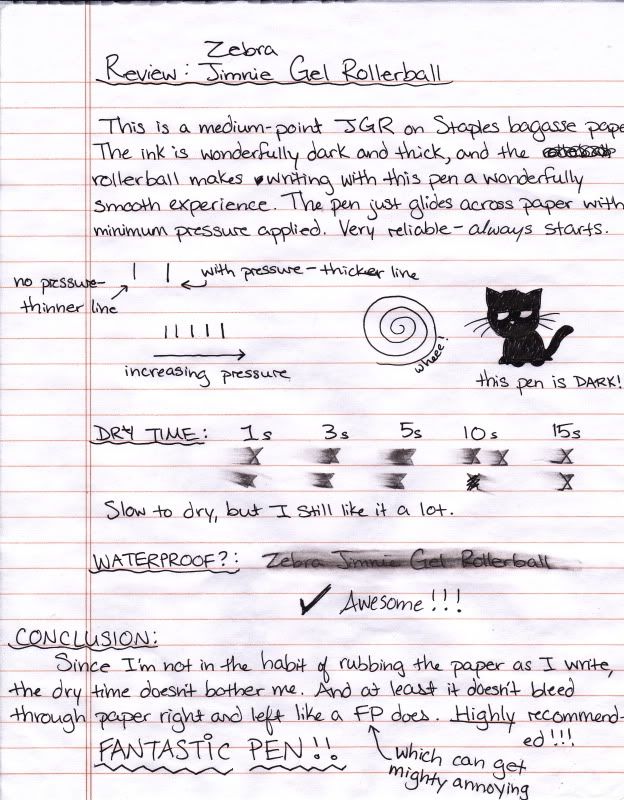 Zebra
Review: Jimnie Gel Rollerball
This is a medium-point JGR on Staples bagasse pape
The ink is wonderfully dark and thick, and the
rollerball makes writing with this pen a wonderfully
smooth experience. The pen just glides across paper with
minimum pressure applied. Very reliable - always starts.
no pressure-
thinner line
with pressure - thicker line
increasing pressure
wheee!
this pen is DARK!
DRY TIME: 1s 3s 5s 10s 15s
X X X X X X
X X X X X
Slow to dry, but I still like it a lot.
WATERPROOF?: Zebra Jimnie Gel Rollerball
✓ Awesome!!!
CONCLUSION:
Since I'm not in the habit of rubbing the paper as I write,
the dry time doesn't bother me. And at least it doesn't bleed
through paper right and left like a FP does. Highly recommend-
ed!!!
which can get
mighty annoying
FANTASTIC PEN!!